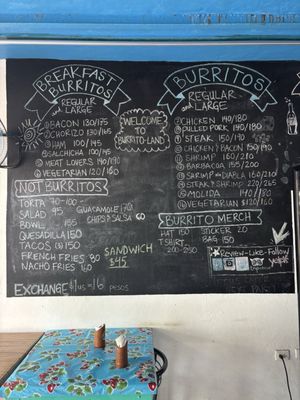 BREAKFAST
BURRITOS
REGULAR
and LARGE
① BACON 130/175
② CHORIZO 130/165
③ HAM 100/145
④ SALCHICHA 100/145
⑤ MEAT LOVERS 140/190
⑥ VEGETARIAN 120/160
WELCOME
TO
BURRITO-LAND
BURRITOS
REGULAR
and LARGE
CHICKEN 140/180
PULLED PORK 140/180
STEAK 150/190
CHICKEN & BACON 150/190
SHRIMP 160/210
BARBACOA 155/200
SHRIMP DIABLA 160/210
STEAK & SHRIMP 220/265
MOLIDA 140/180
VEGETARIAN $120/160
NOT BURRITOS
TORTA 70-100
SALAD 95
BOWL 155
QUESADILLA 150
TACOS (3) 150
FRENCH FRIES 80
NACHO FRIES 160
GUACAMOLE
CHIPS & SALSA 60
SANDWICH
$95
BURRITO MERCH
HAT 150 STICKER 20
TSHIRT BAG 150
200-250
Review-Like-Follow
yelp
EXCHANGE $1US=16 PESOS